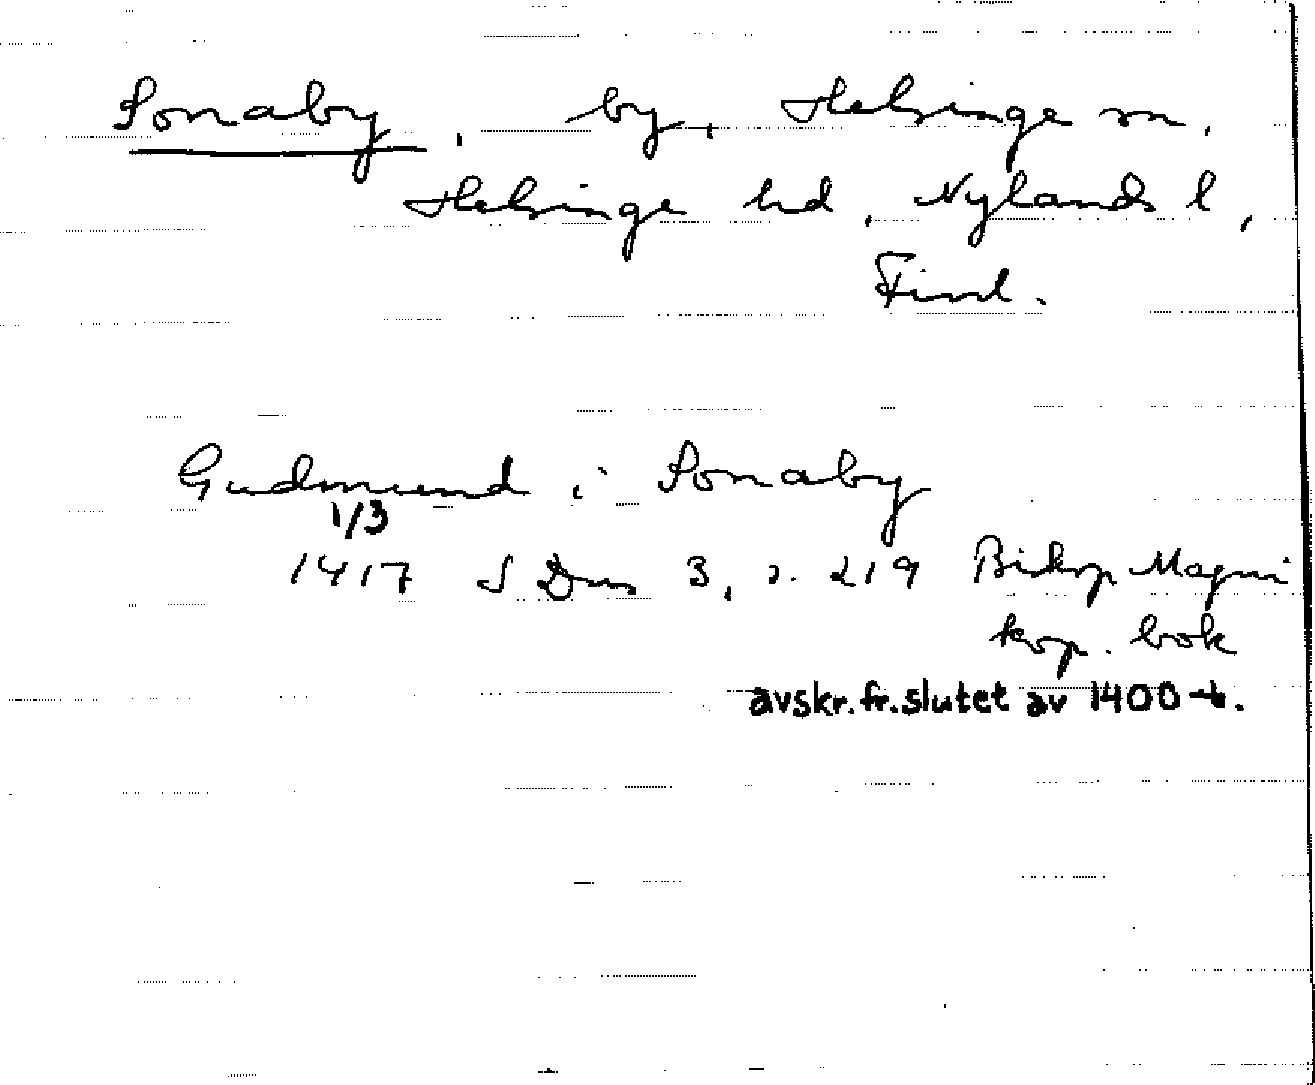 Sonaby, by, Helsinge sn,
Helsinge hd, Nylands l,
Finl.
Gudmund i Sonaby
1/3
1417 SDns 3, s. 219 Biskop Magni
kop. bok
avskr. fr. slutet av 1400-t.